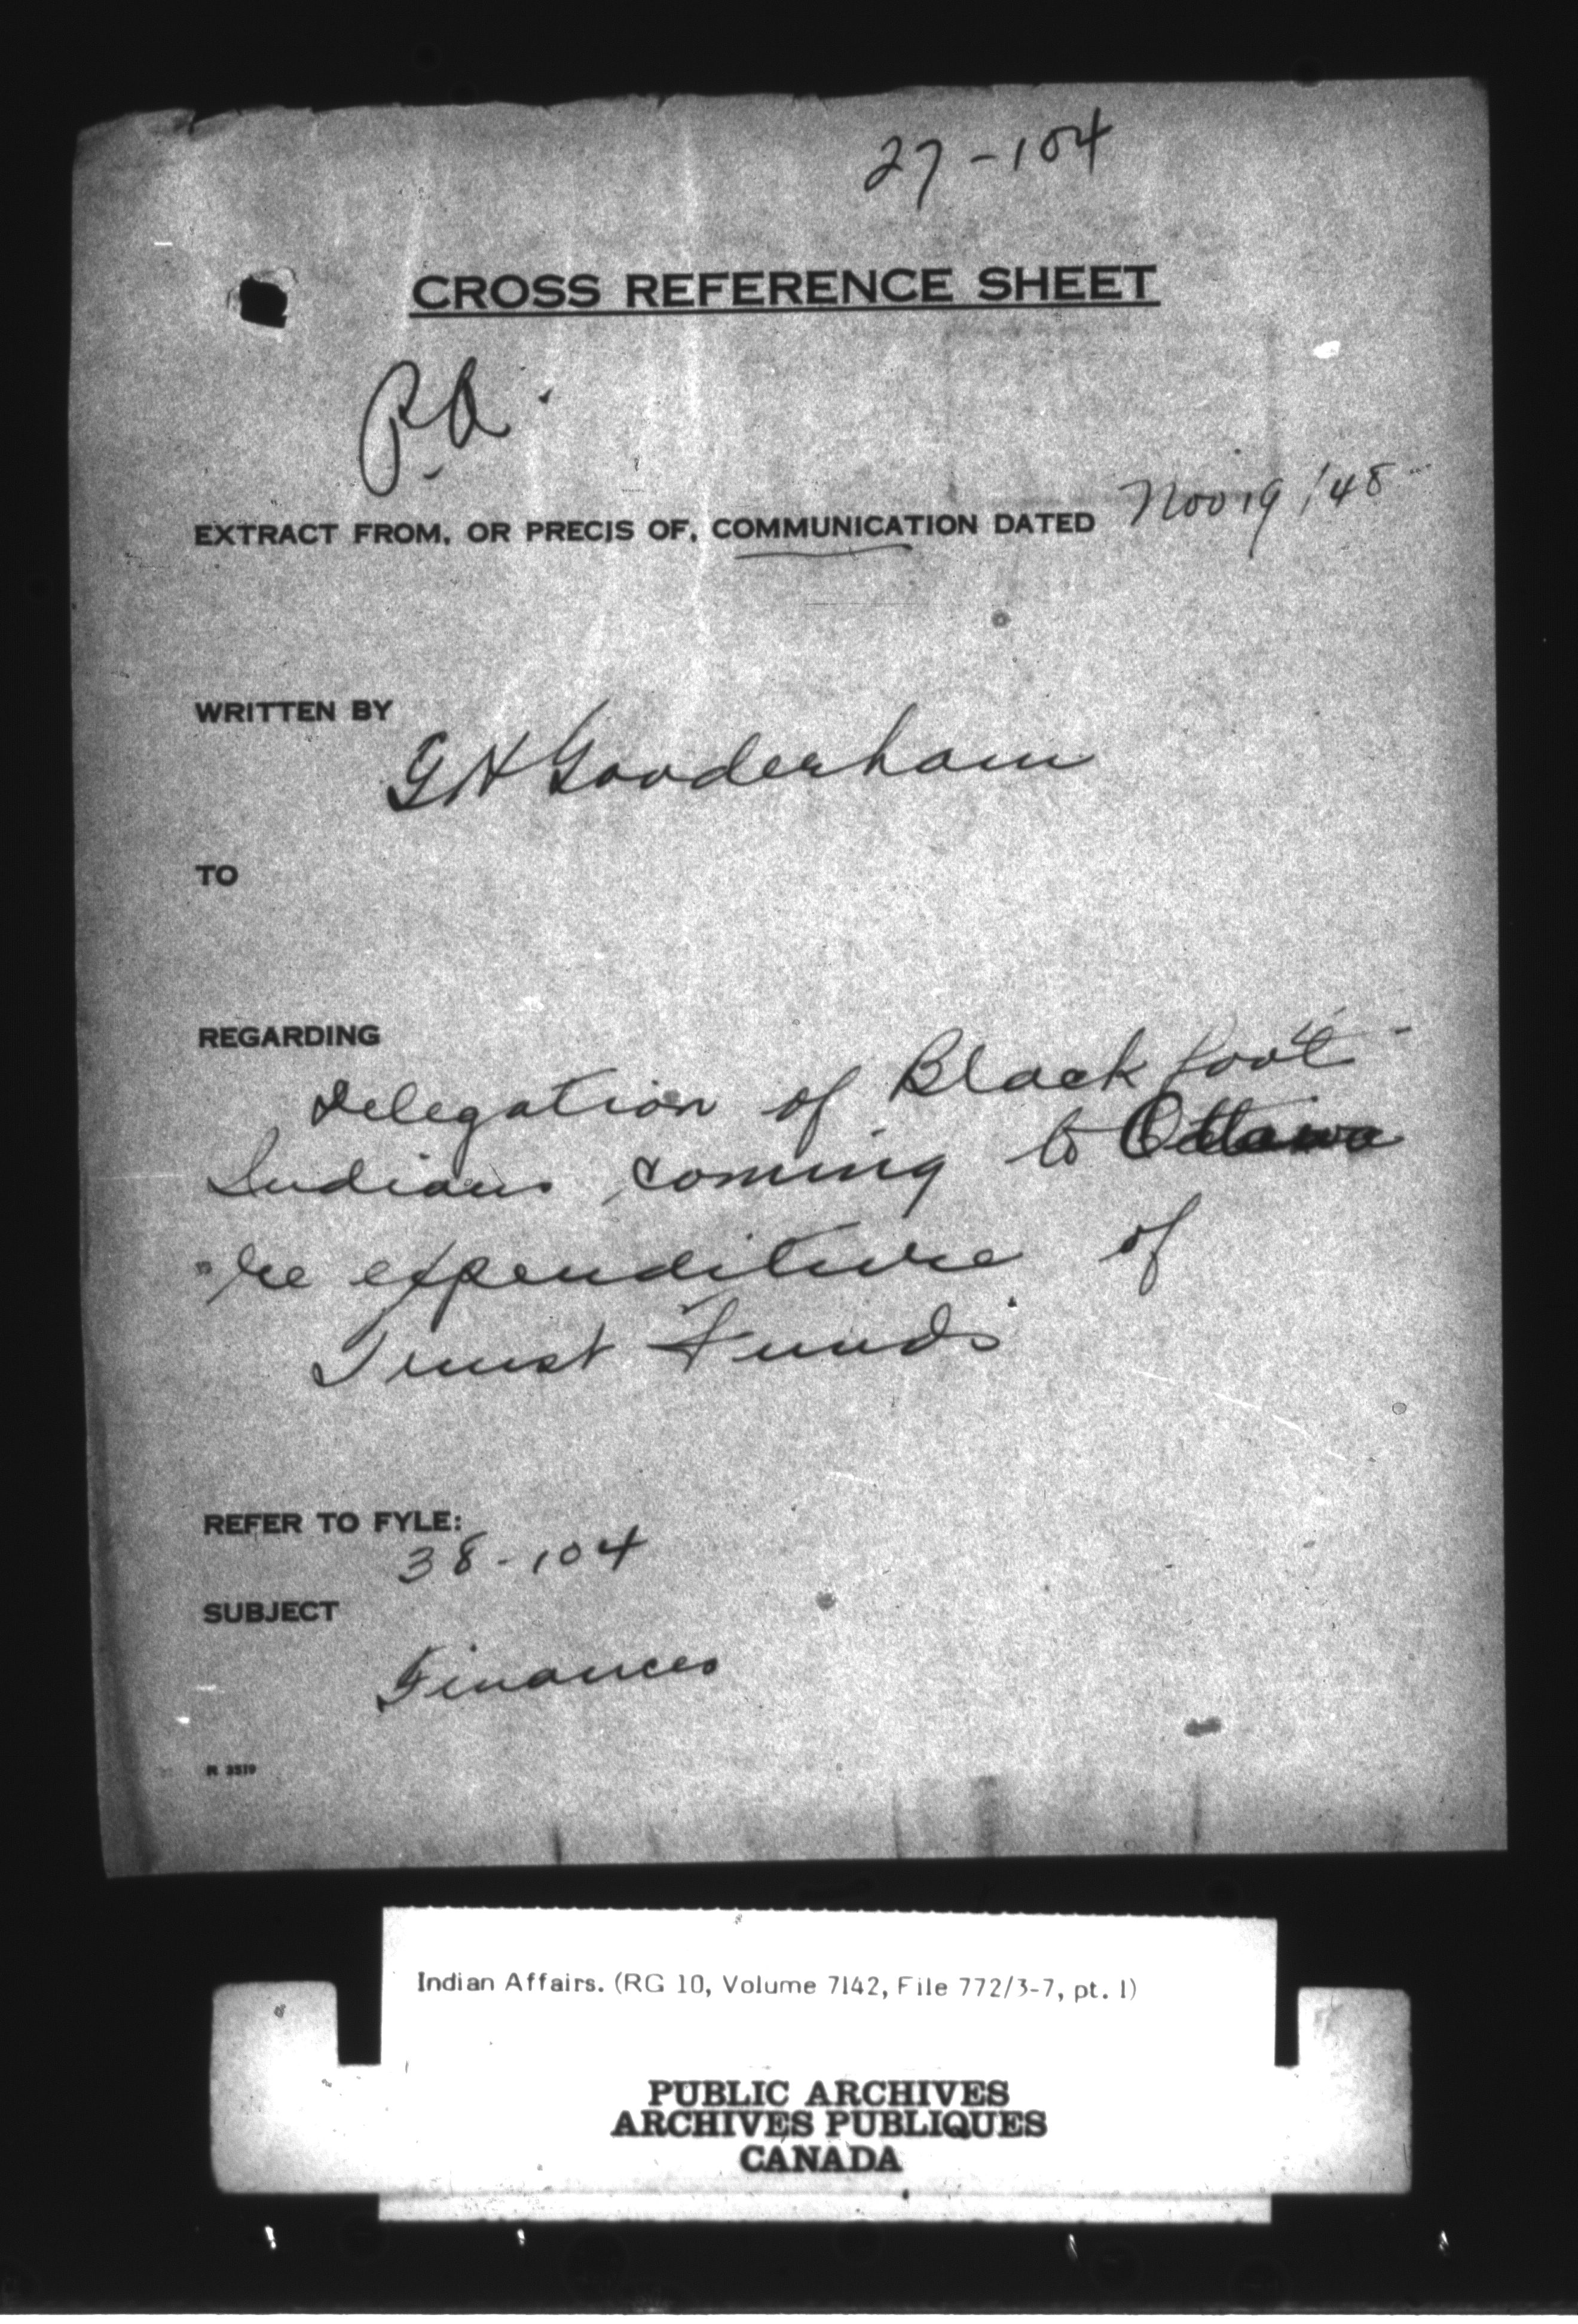 27-104
CROSS REFERENCE SHEET
P.A.
EXTRACT FROM, OR PRECIS OF, COMMUNICATION DATED Nov 19/48
WRITTEN BY
GH Gooderham
TO
REGARDING
Delegation of Blackfoot
Indians coming to Ottawa
re expenditure of
Trust Funds
REFER TO FYLE:
38-104
SUBJECT
Finances
R 3519
Indian Affairs. (RG 10, Volume 7142, File 772/3-7, pt. 1)
PUBLIC ARCHIVES
ARCHIVES PUBLIQUES
CANADA